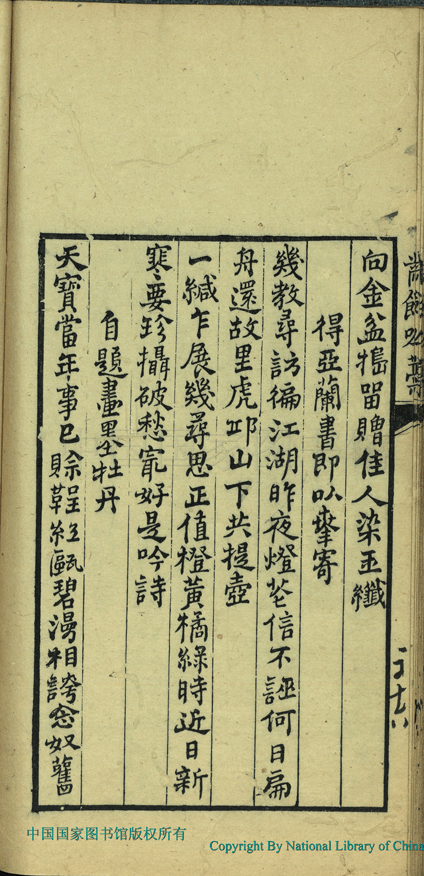 向金盆搗畱贈佳人染玉纖
得亞蘭書即以寄
幾教尋訪徧江湖昨夜燈花信不誣何日扁
舟還故里虎邱山下共提壺
一緘乍展幾尋思正值橙黃橘綠時近日新
寒要珍攝破愁甯好是吟詩
自題畫墨牡丹
天寶當年事已賒鞓紅甌碧漫相誇念奴舊
中国国家图书馆版权所有
Copyright By National Library of China